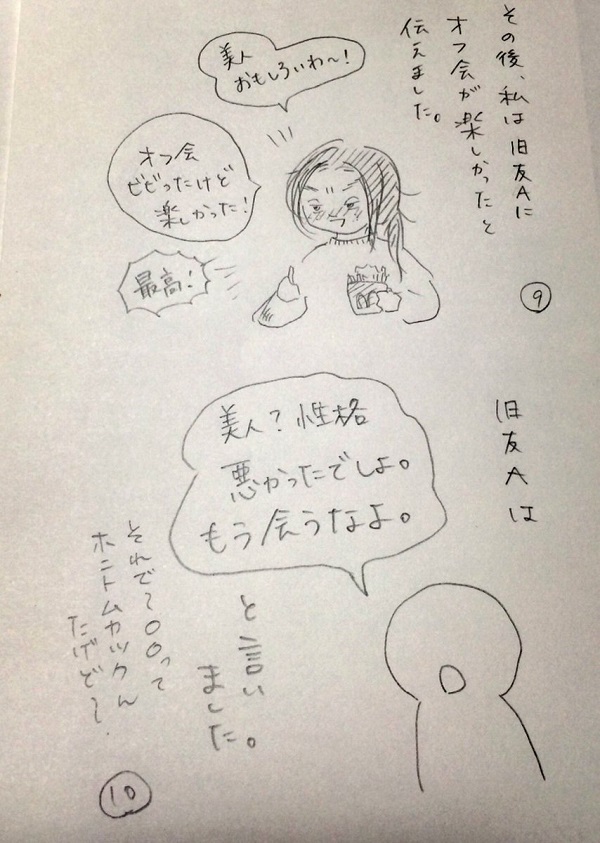 その後、私は旧友Aに
オフ会が楽しかったと
伝えました。
美人
おもしろいわ〜!
オフ会
ビビったけど
楽しかった!
最高!
9
旧友Aは
美人?性格
悪かったでしょ。
もう会うなよ。
と言い
ました。
それで〜〇〇って
ホントムカツくん
だけど〜.
10